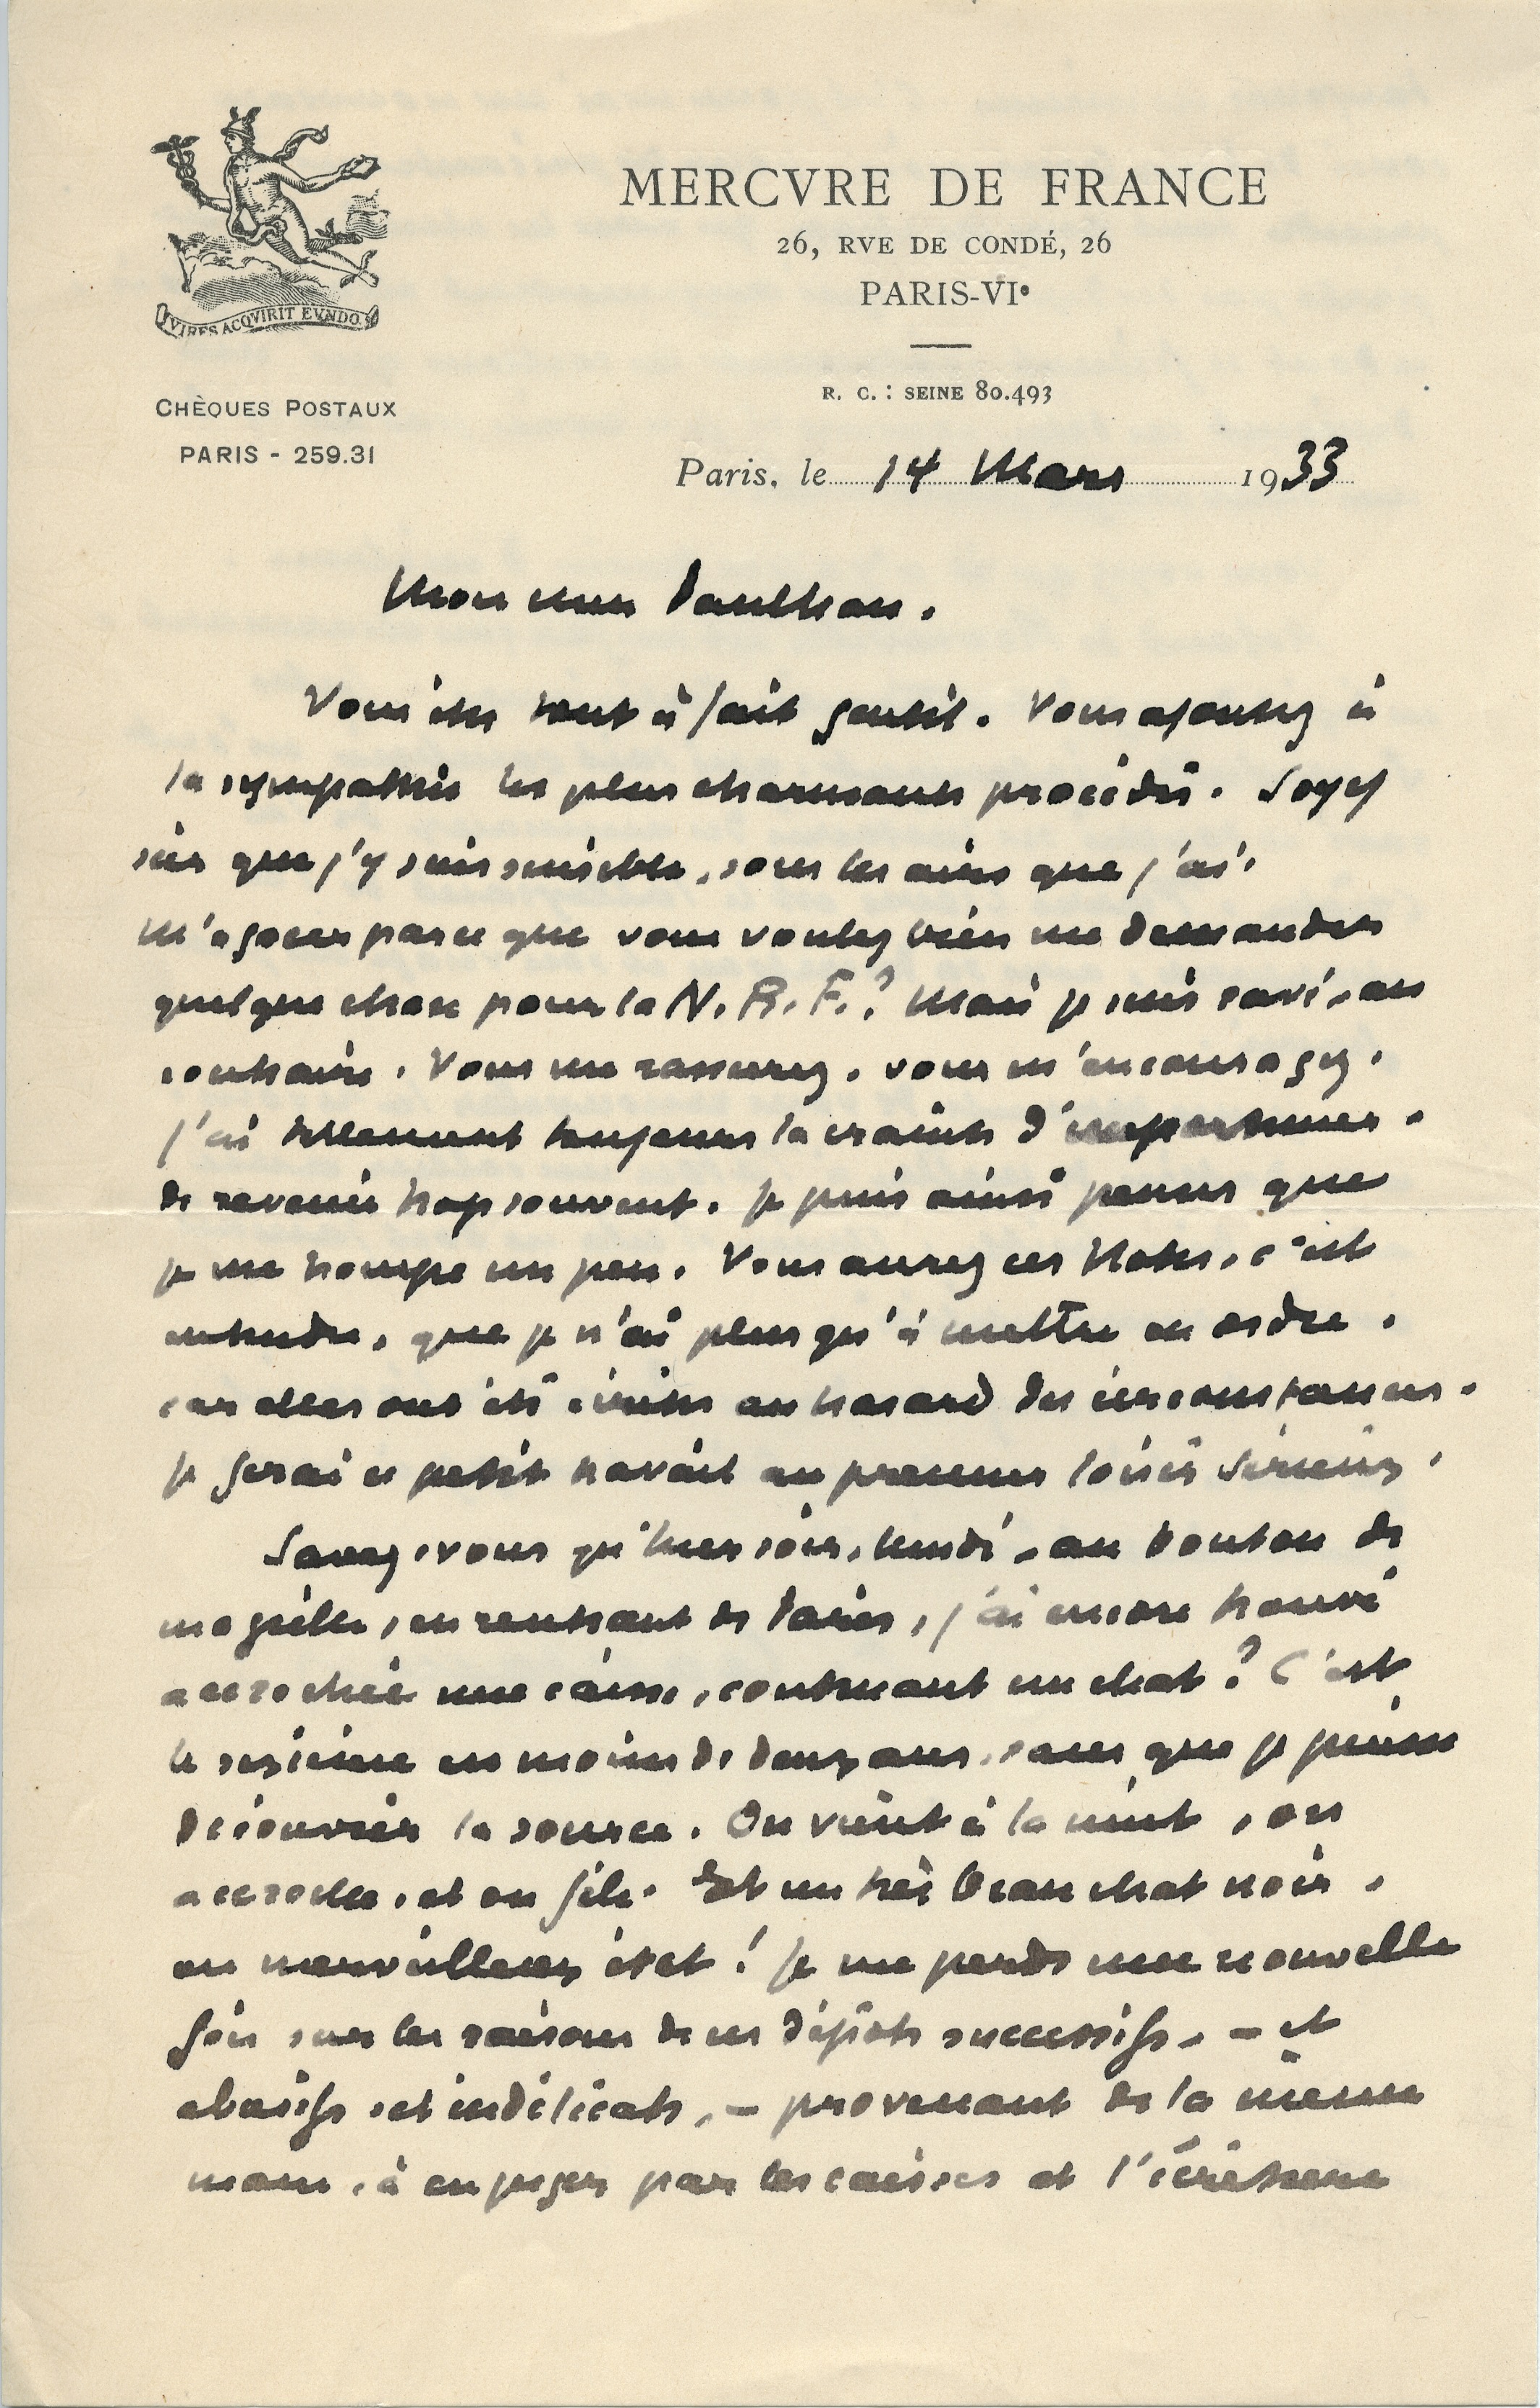 MERCVRE DE FRANCE
26, RVE DE CONDÉ, 26
PARIS-VIe
VIRES ACQVIRIT EVNDO
R. C. : SEINE 80.493
CHÈQUES POSTAUX
PARIS - 259.31
Paris, le 14 Mars 1933
Mon cher Paulhan,
Vous êtes tout à fait gentil. Vous ajoutez à
la sympathie les plus charmants procédés. Soyez
sûr que j'y suis sensible, sous les airs que j'ai.
M'agacer parce que vous voulez bien me demander
quelque chose pour la N. R. F.? Mais je suis ravi, au
contraire. Vous me rassurez, vous m'encouragez.
J'ai tellement toujours la crainte d'importuner,
de revenir trop souvent. Je puis ainsi penser que
je me trompe un peu. Vous aurez ces Notes, c'est
entendu, que je n'ai plus qu'à mettre en ordre,
car elles ont été écrites au hasard des circonstances.
Je ferai ce petit travail au premier loisir sérieux.
Savez-vous qu'hier soir, lundi, au bouton de
ma grille, en rentrant de Paris, j'ai encore trouvé
accrochée une caisse, contenant un chat? C'est
le sixième en moins de deux ans, sans que je puisse
découvrir la source. On vient à la nuit, on
accroche, et on file. Et un très beau chat noir,
en merveilleux état! Je me perds une nouvelle
fois sur les raisons de ces dépôts successifs, – et
abusifs, et indélicats, – provenant de la même
main, à en juger par les caisses et l'écriture